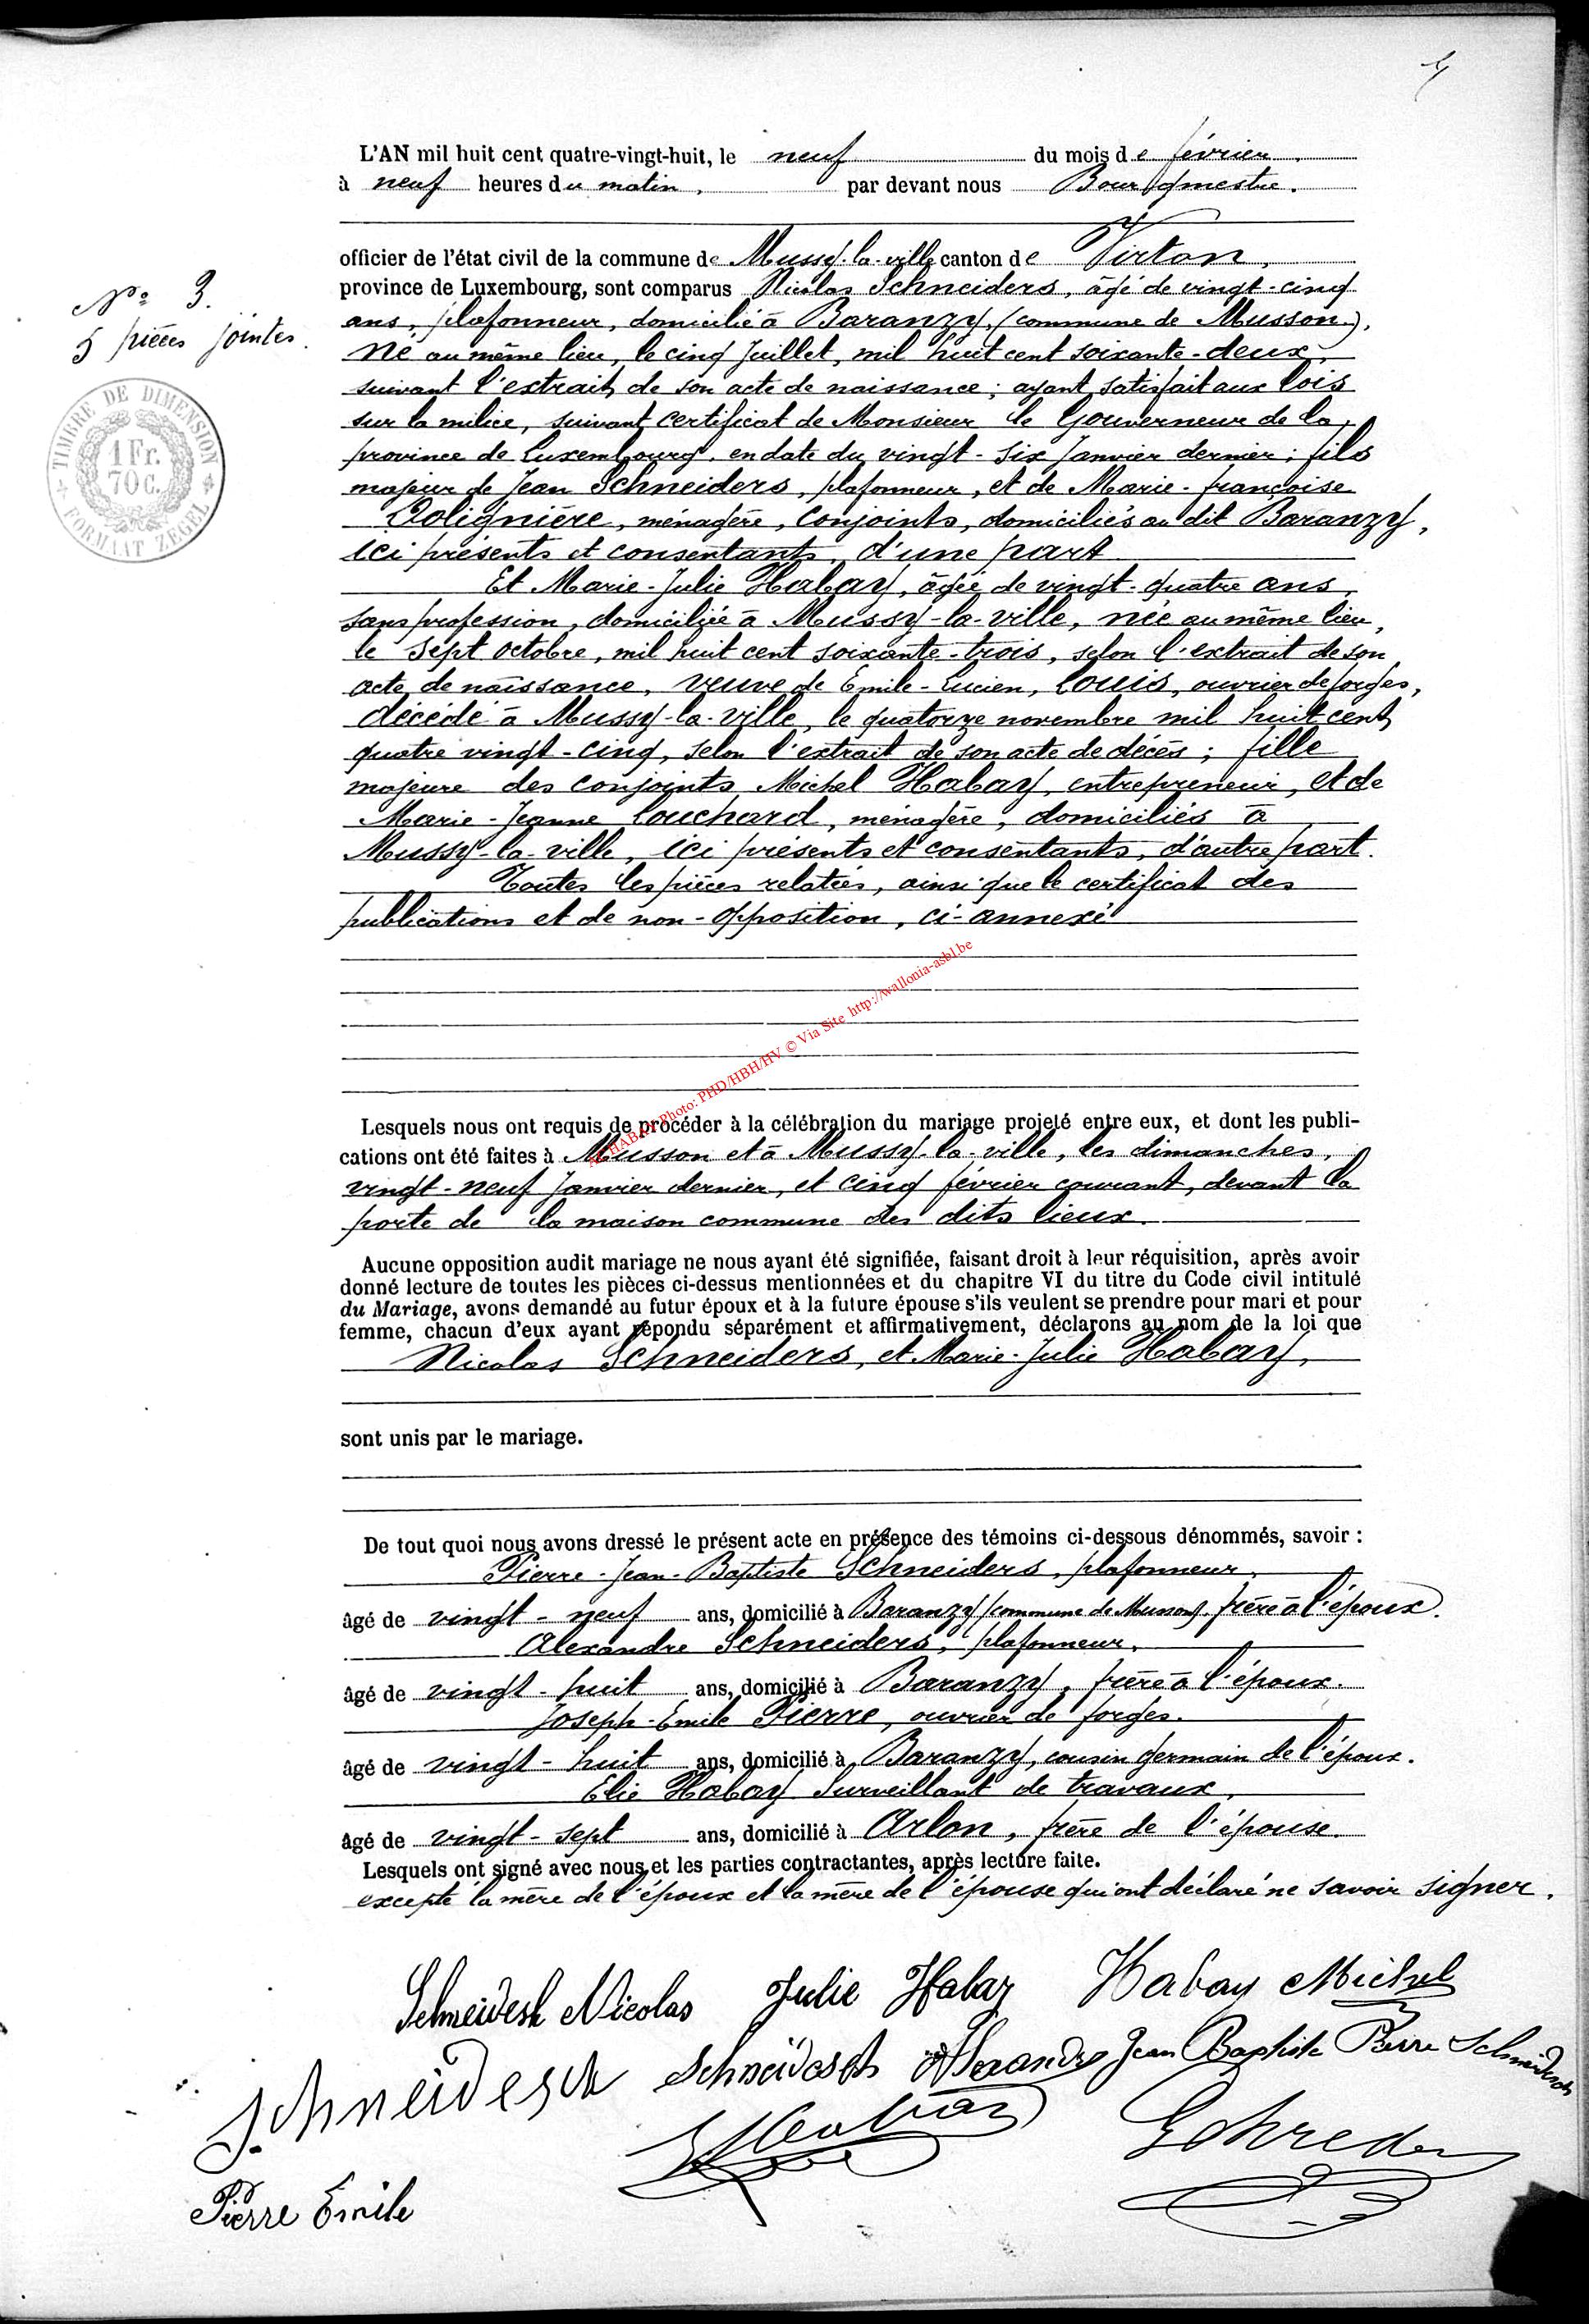 L'AN mil huit cent quatre-vingt-huit, le neuf du mois de février.
à neuf heures du matin, par devant nous Bourgmestre.
officier de l'état civil de la commune de Mussy-la-ville canton de Virton,
province de Luxembourg, sont comparus Nicolas Schneiders, âgé de vingt-cinq
ans, plafonneur, domicilié à Baranzy, (commune de Musson),
Né au même lieu, le cinq Juillet, mil huit cent soixante-deux,
suivant l'extrait de son acte de naissance; ayant satisfait aux lois
sur la milice, suivant certificat de Monsieur le Gouverneur de la
province de Luxembourg, en date du vingt-six Janvier dernier; fils
majeur de Jean Schneiders, plafonneur, et de Marie-françoise
Dolignière, ménagère, conjoints, domiciliés au dit Baranzy,
ici présents et consentants, d'une part
Et Marie-Julie Habay, âgée de vingt-quatre ans,
sans profession, domiciliée à Mussy-la-ville, née au même lieu,
le sept octobre, mil huit cent soixante-trois, selon l'extrait de son
acte de naissance, veuve de Emile-Lucien, Louis, ouvrier de forges,
décédé à Mussy-la-ville, le quatorze novembre mil huit cent
quatre vingt-cinq, selon l'extrait de son acte de décès; fille
majeure des conjoints Michel Habay, entrepreneur, et de
Marie-Jeanne Louchard, ménagère, domiciliés à
Mussy-la-ville, ici présents et consentants, d'autre part.
Toutes les pièces relatées, ainsi que le certificat des
publications et de non-opposition, ci-annexé
N° 3.
5 pièces jointes.
TIMBRE DE DIMENSION
1 Fr.
70 C.
FORMAAT ZEGEL
HABAY Photo: PHD/HBH/HV © Via Site http://wallonia-asbl.be
Lesquels nous ont requis de procéder à la célébration du mariage projeté entre eux, et dont les publi-
cations ont été faites à Musson et à Mussy-la-ville, les dimanches,
vingt-neuf Janvier dernier, et cinq février courant, devant la
porte de la maison commune des dits lieux.
Aucune opposition audit mariage ne nous ayant été signifiée, faisant droit à leur réquisition, après avoir
donné lecture de toutes les pièces ci-dessus mentionnées et du chapitre VI du titre du Code civil intitulé
du Mariage, avons demandé au futur époux et à la future épouse s'ils veulent se prendre pour mari et pour
femme, chacun d'eux ayant répondu séparément et affirmativement, déclarons au nom de la loi que
Nicolas Schneiders, et Marie-Julie Habay,
sont unis par le mariage.
De tout quoi nous avons dressé le présent acte en présence des témoins ci-dessous dénommés, savoir :
Pierre-Jean-Baptiste Schneiders, plafonneur,
âgé de vingt-neuf ans, domicilié à Baranzy (commune de Musson), frère à l'époux.
Alexandre Schneiders, plafonneur,
âgé de vingt-huit ans, domicilié à Baranzy, frère à l'époux.
Joseph-Emile Pierre, ouvrier de forges.
âgé de vingt-huit ans, domicilié à Baranzy, cousin germain de l'époux.
Elie Habay surveillant de travaux,
âgé de vingt-sept ans, domicilié à Arlon, frère de l'épouse.
Lesquels ont signé avec nous et les parties contractantes, après lecture faite.
excepté la mère de l'époux et la mère de l'épouse qui ont déclaré ne savoir signer.
Nicolas Julie Habay Habay Michel
Alexandre Jean Baptiste Pierre
Pierre Emile